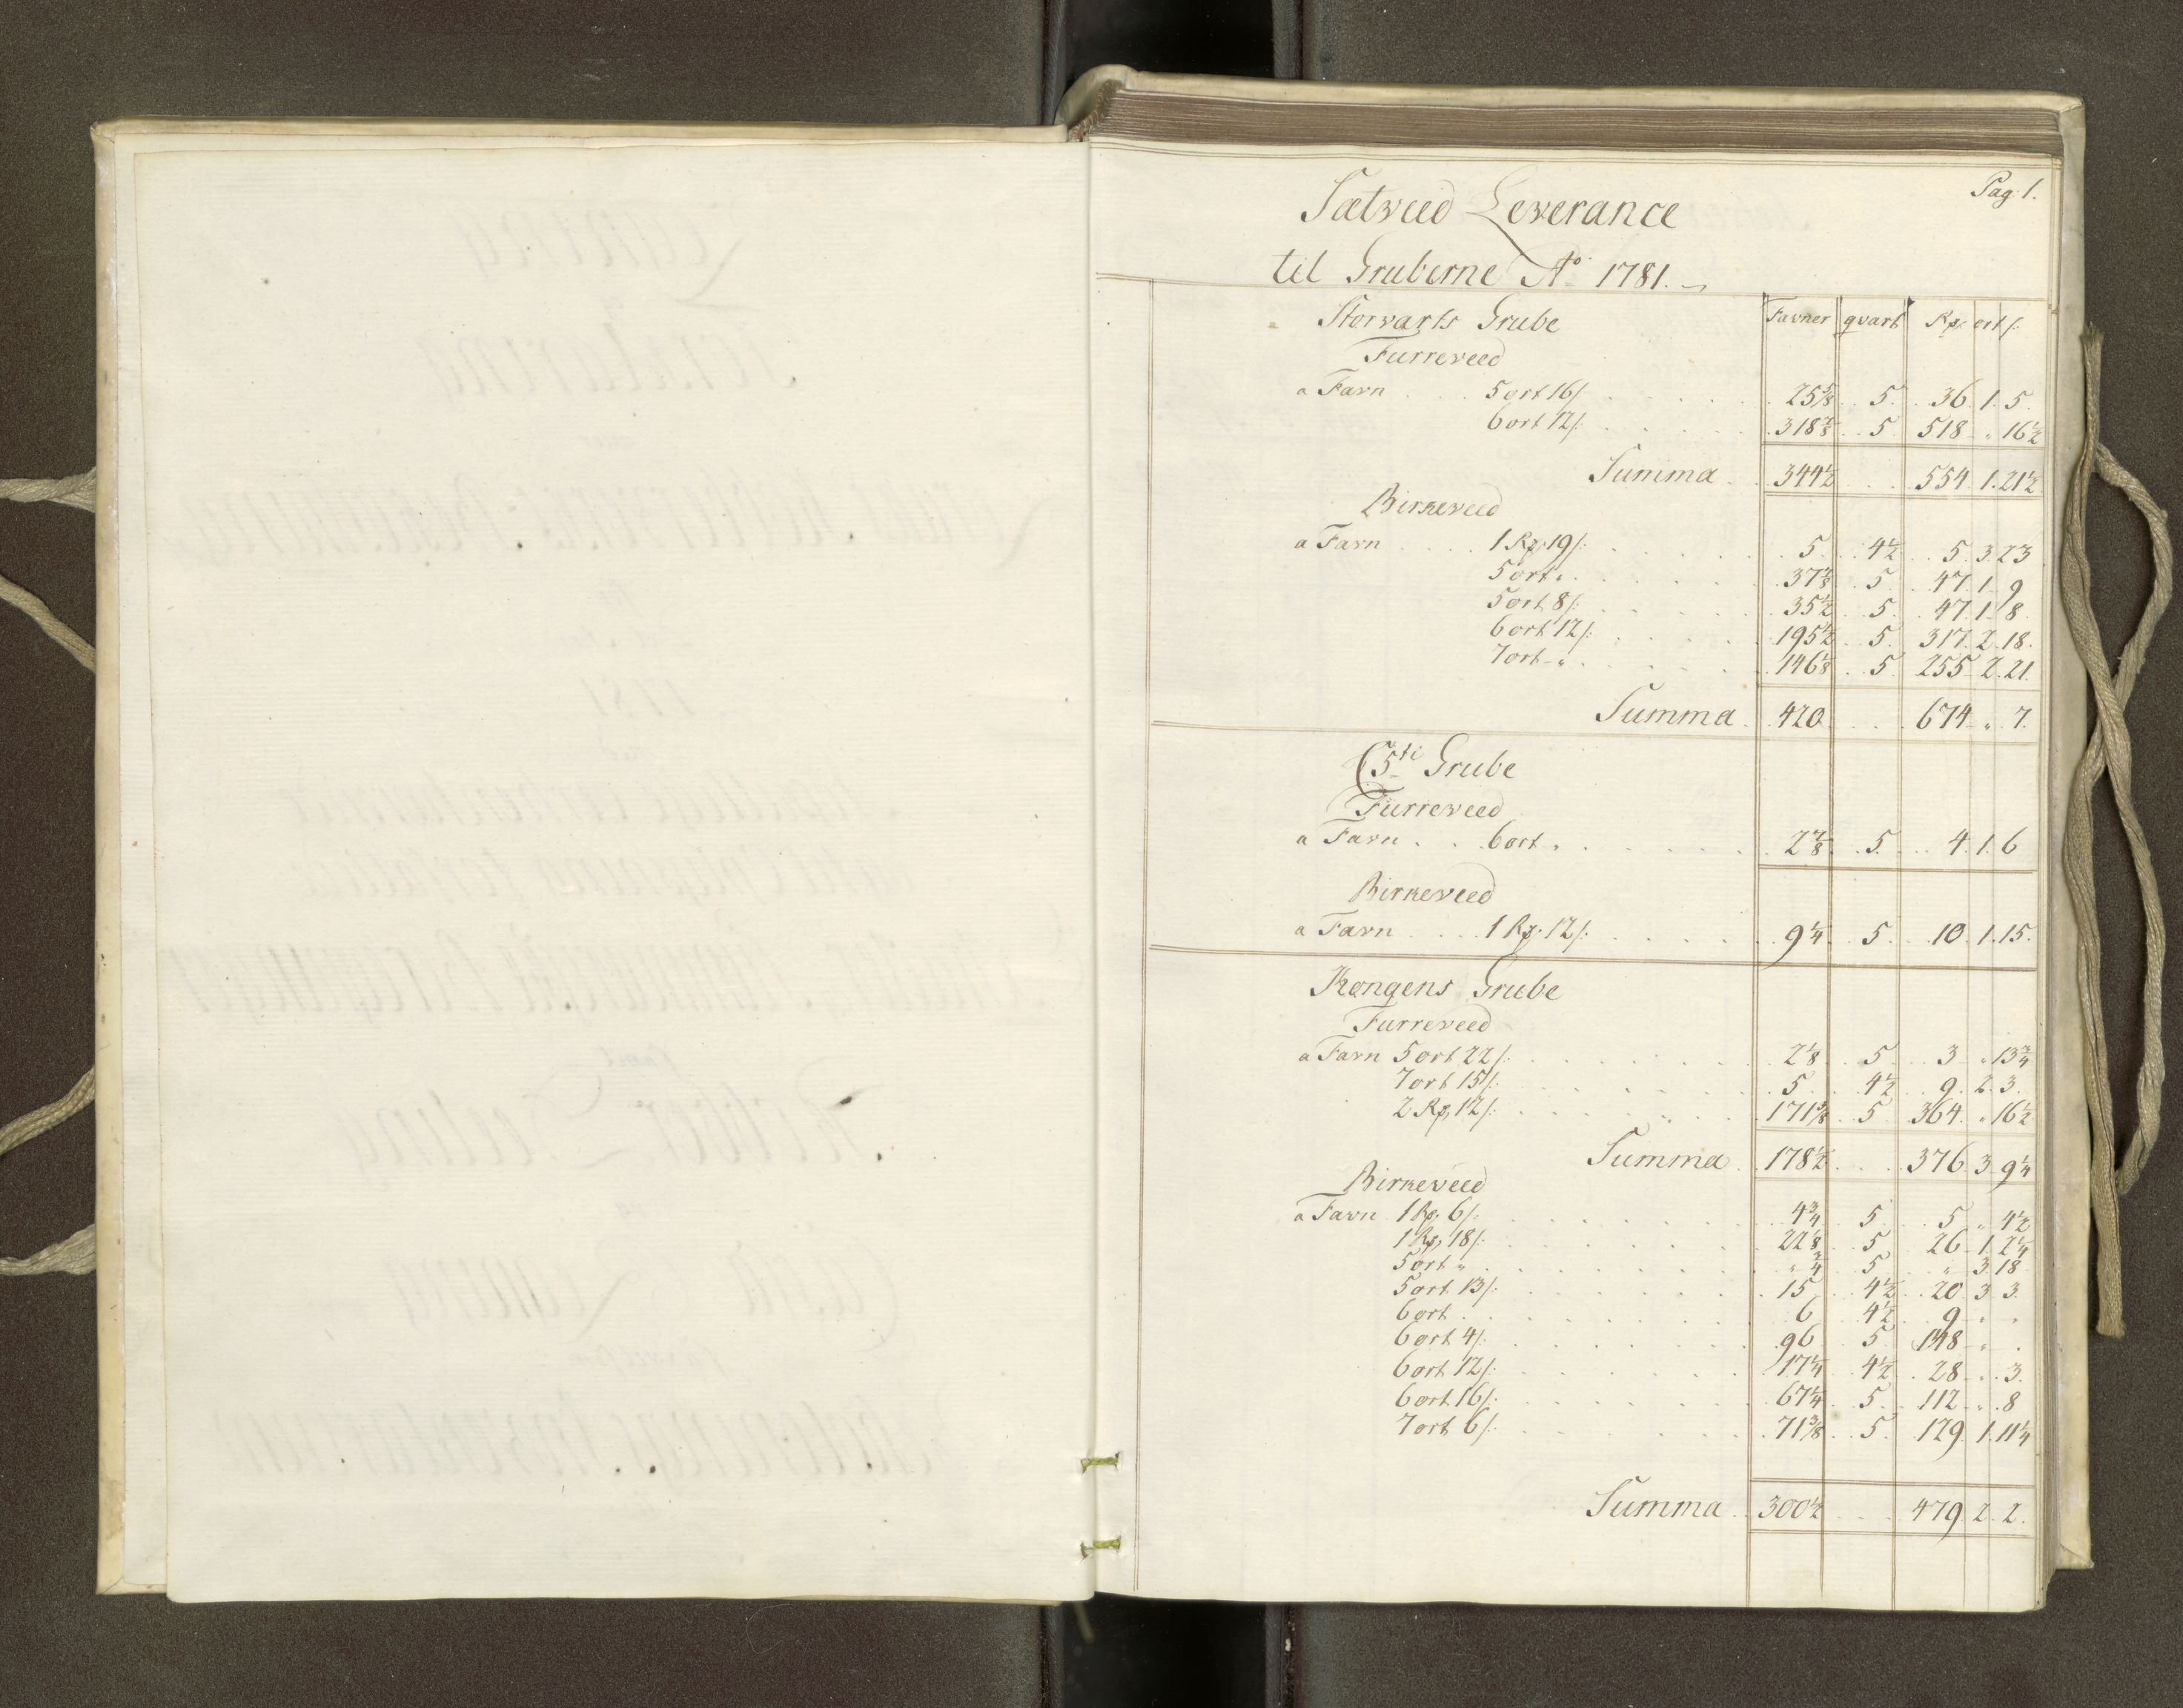 Pag: 1.
Sætveed Leverance
til Gruberne Ao 1781.
Storvarts Grube Favner qvart Rd: ort s:
Furreveed
a Favn 5 ort 16 s: 25 5/8 5 36 1 5
6 ort 12 s: 318 7/8 5 518 " 16 1/2
Summa 344 1/2 554 1 21 1/2
Birkeveed
a Favn 1 Rd: 19 s: 5 4 1/2 5 3 23
5 ort " 37 7/8 5 47 1 9
5 ort 8 s: 35 1/2 5 47 1 8
6 ort 12 s: 195 1/2 5 317 2 18
7 ort " 146 1/8 5 255 2 21
Summa 420 674 " 7
5te Grube
Furreveed
a Favn 6 ort " 2 7/8 5 4 1 6
Birkeveed
a Favn 1 Rd: 12 s: 9 1/4 5 10 1 15
Kongens Grube
Furreveed
a Favn 5 ort 22 s: 2 1/8 5 3 " 13 3/4
7 ort 15 s: 5 4 1/2 9 2 3
2 Rd: 12 s: 171 3/8 5 364 " 16 1/2
Summa 178 1/2 376 3 9 1/4
Birkeveed
a Favn 1 Rd: 6 s: 4 3/4 5 5 " 4 1/2
1 Rd: 18 s: 22 1/8 5 26 1 2 1/4
5 ort " " 3/4 5 " 3 18
5 ort 13 s: 15 4 1/2 20 3 3
6 ort 6 4 1/2 9 " "
6 ort 4 s: 96 5 148 "
6 ort 12 s: 17 1/4 4 1/2 28 " 3
6 ort 16 s: 67 1/4 5 112 " 8
7 ort 6 s: 71 3/8 5 129 1 11 1/4
Summa 300 1/2 479 2 2